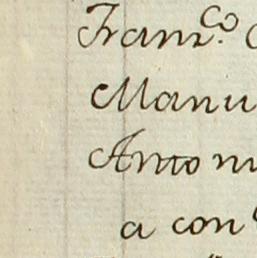 Franz.co
Manu
Antoni
a con